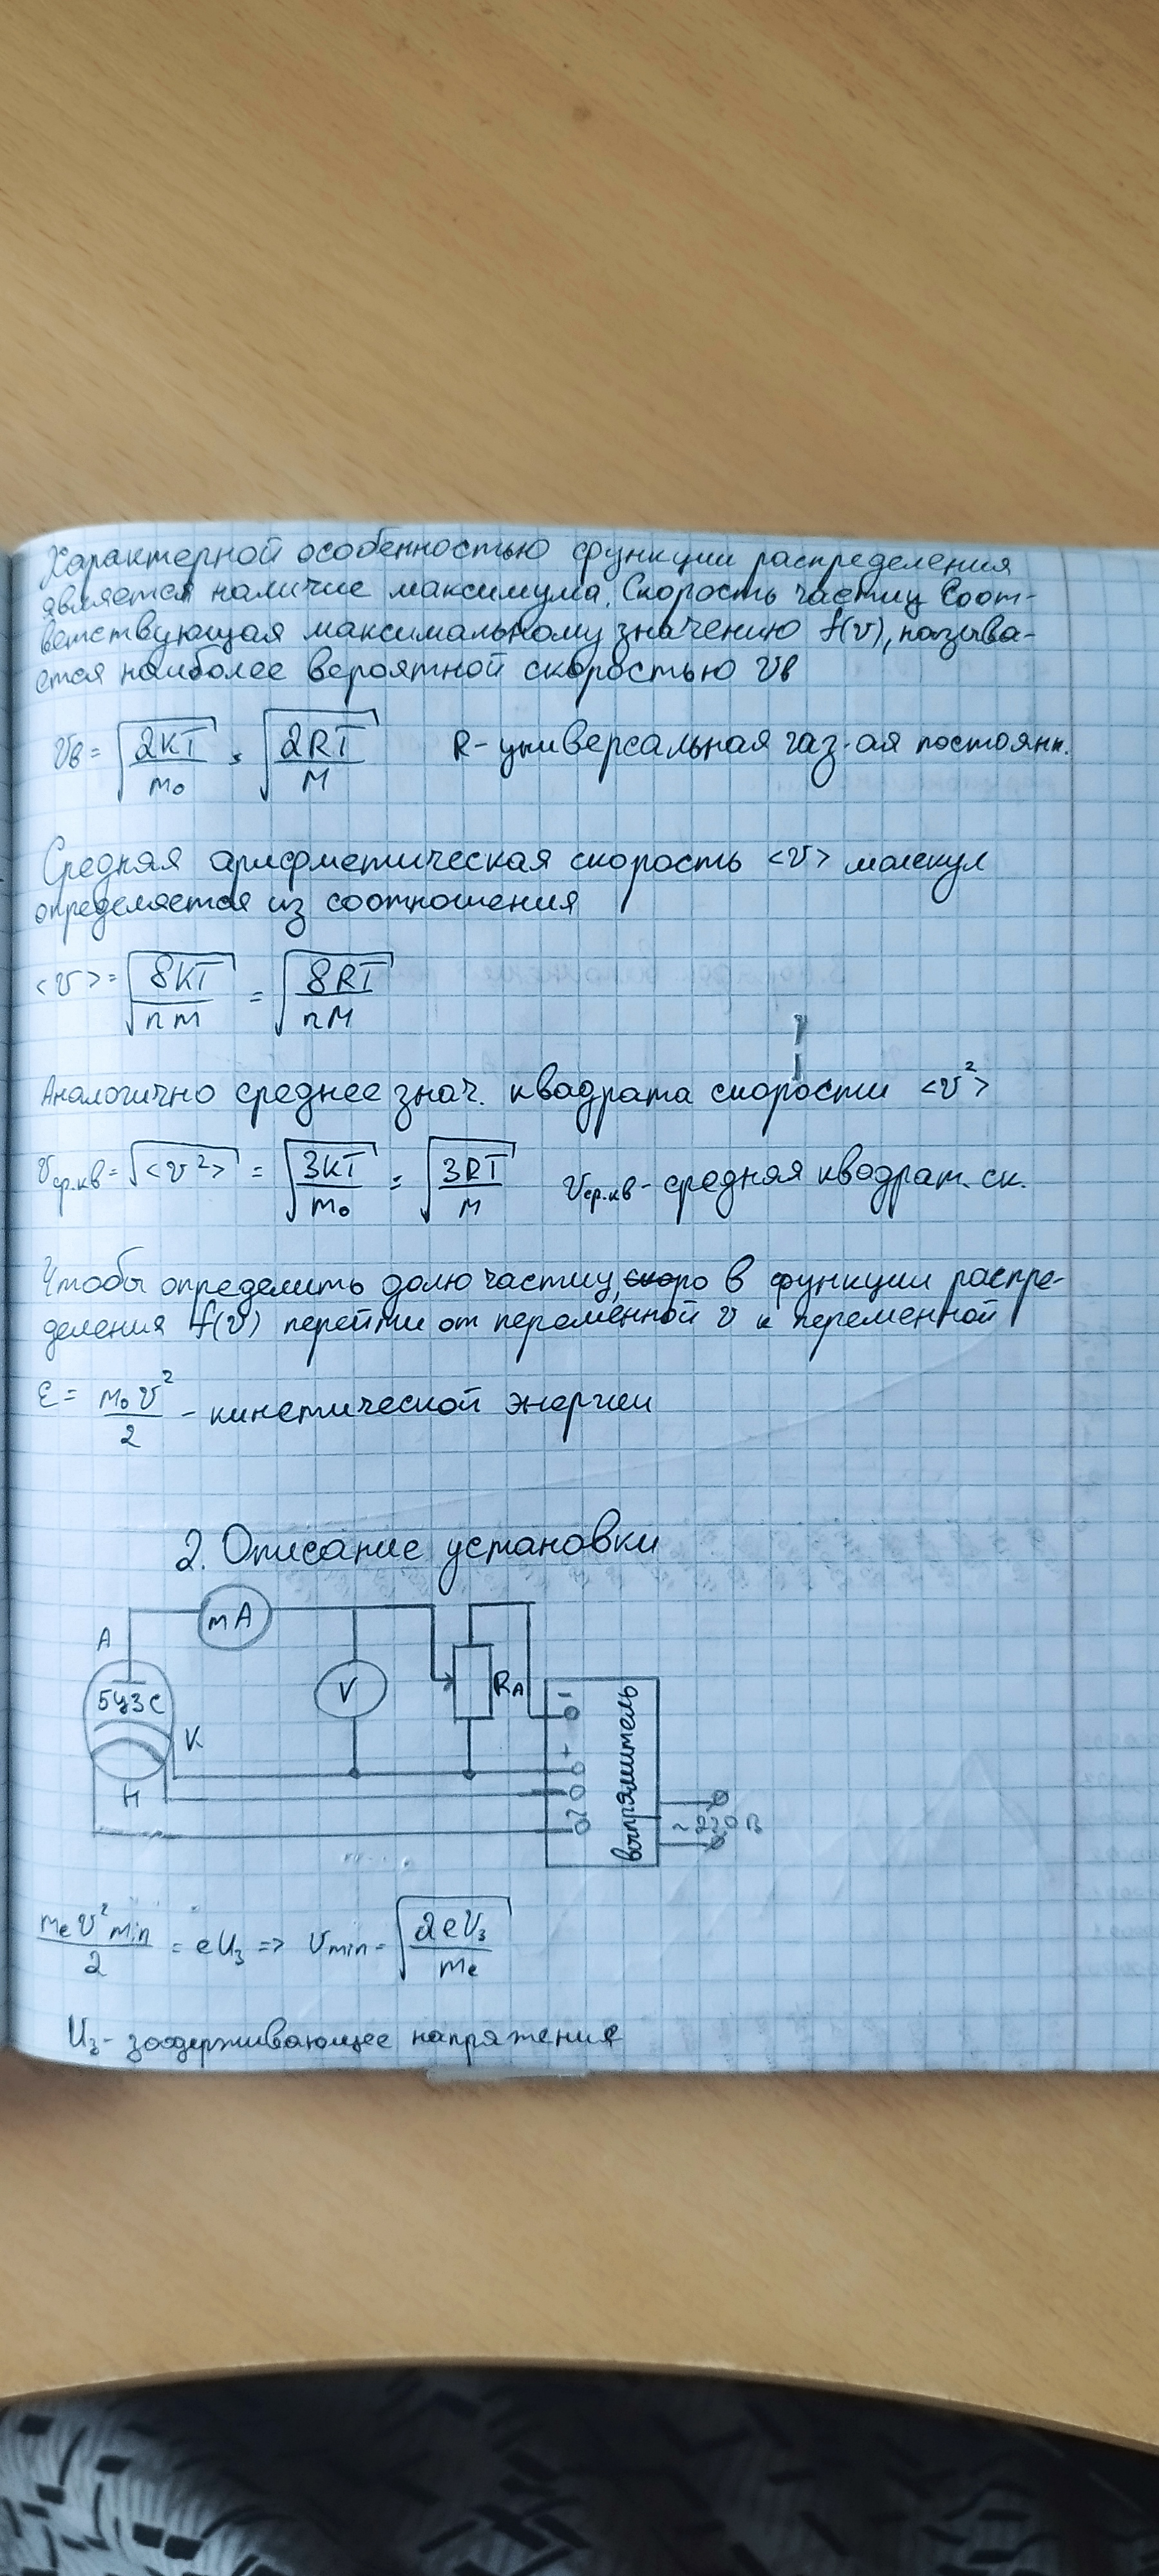 Характерной особенностью функции распределения
является наличие максимума. Скорость частиц соот-
ветствующая максимальному значению f(v), называ-
ется наиболее вероятной скоростью vв
vв = √(2кТ/m₀) = √(2RT/M) R - универсальная газ-ая постоянн.
Средняя арифметическая скорость <v> молекул
определяется из соотношения
<v> = √(8кТ/пm) = √(8RT/пM)
Аналогично среднее знач. квадрата скорости <v²>
vср.кв = √<v²> = √(3кТ/m₀) = √(3RT/M) vср.кв - средняя квадрат. ск.
Чтобы определить долю частиц, в функции распре-
деления f(v) перейти от переменной v к переменной
ε = m₀v²/2 - кинетической энергии
2. Описание установки
mA
A
5Ц3С
V
RA
K
H
-
+
выпрямитель
~220 В
mₑv²min/2 = eU₃ => vmin = √(2eU₃/mₑ)
U₃ - задерживающее напряжения